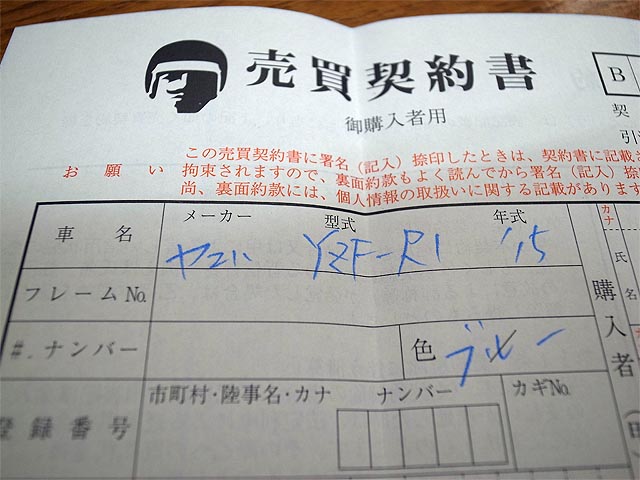 売買契約書
御購入者用
B
契
引
お願い
この売買契約書に署名（記入）捺印したときは、契約書に記載
拘束されますので、裏面約款もよく読んでから署名（記入）捺
尚、裏面約款には、個人情報の取扱いに関する記載があります
車名 メーカー 型式 年式
ヤマハ YZF-R1 '15
フレームNo.
#.ナンバー 色 ブルー
登録番号 市町村・陸事名・カナ ナンバー カギNo.
カナ
氏名
購入者